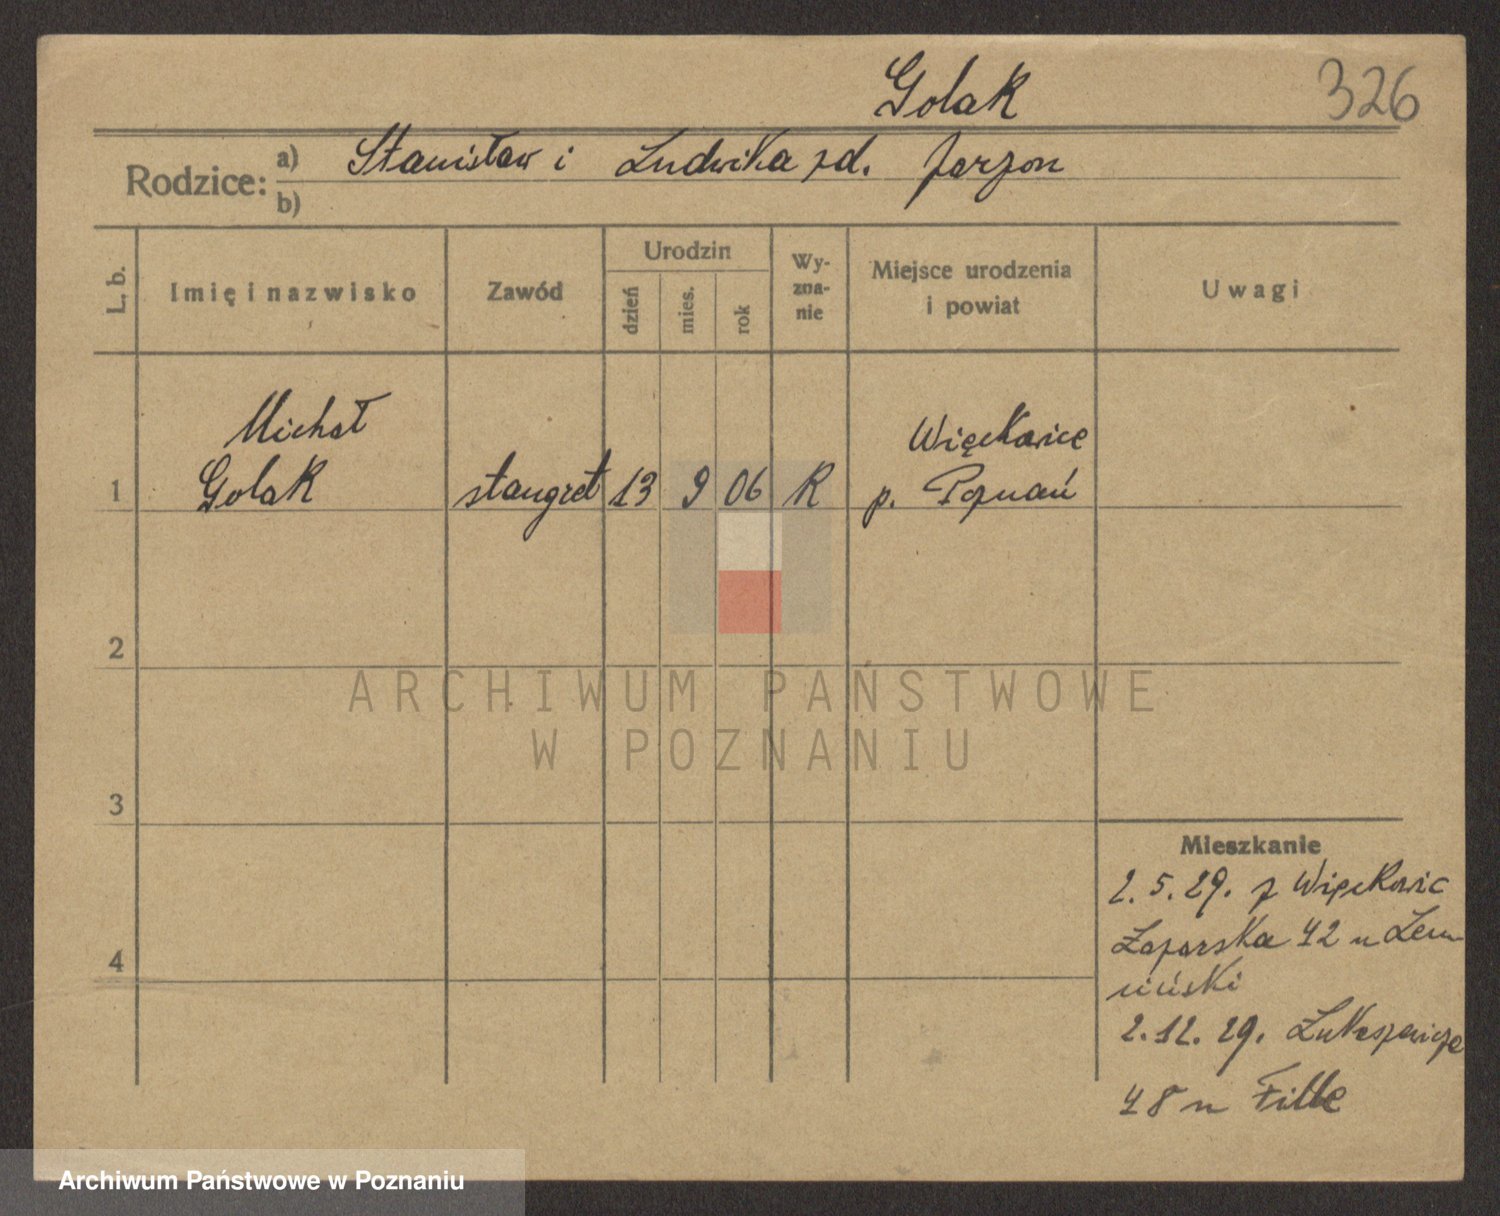 Golak
326
Rodzice: a) Stanisław i Ludwika zd. Jarzon
b)
L. b. Imię i nazwisko Zawód Urodzin dzień mies. rok Wy-zna-nie Miejsce urodzenia i powiat Uwagi
Michał Więckowice
1 Golak stangret 13 9 06 R p. Poznań
2
ARCHIWUM PAŃSTWOWE
W POZNANIU
3
Mieszkanie
2.5.29. z Więckowic
4
Łazarska 42 u Lem
ański
2.12.29. Łukaszewicza
48 u Fille
Archiwum Państwowe w Poznaniu